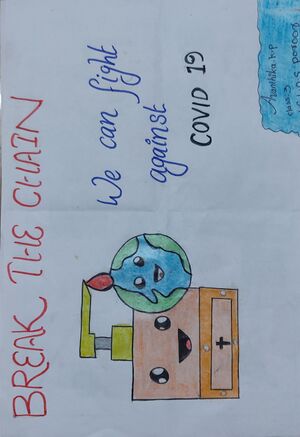 BREAK THE CHAIN
We can fight
against
COVID 19
Avanthika. P. P
class: 3